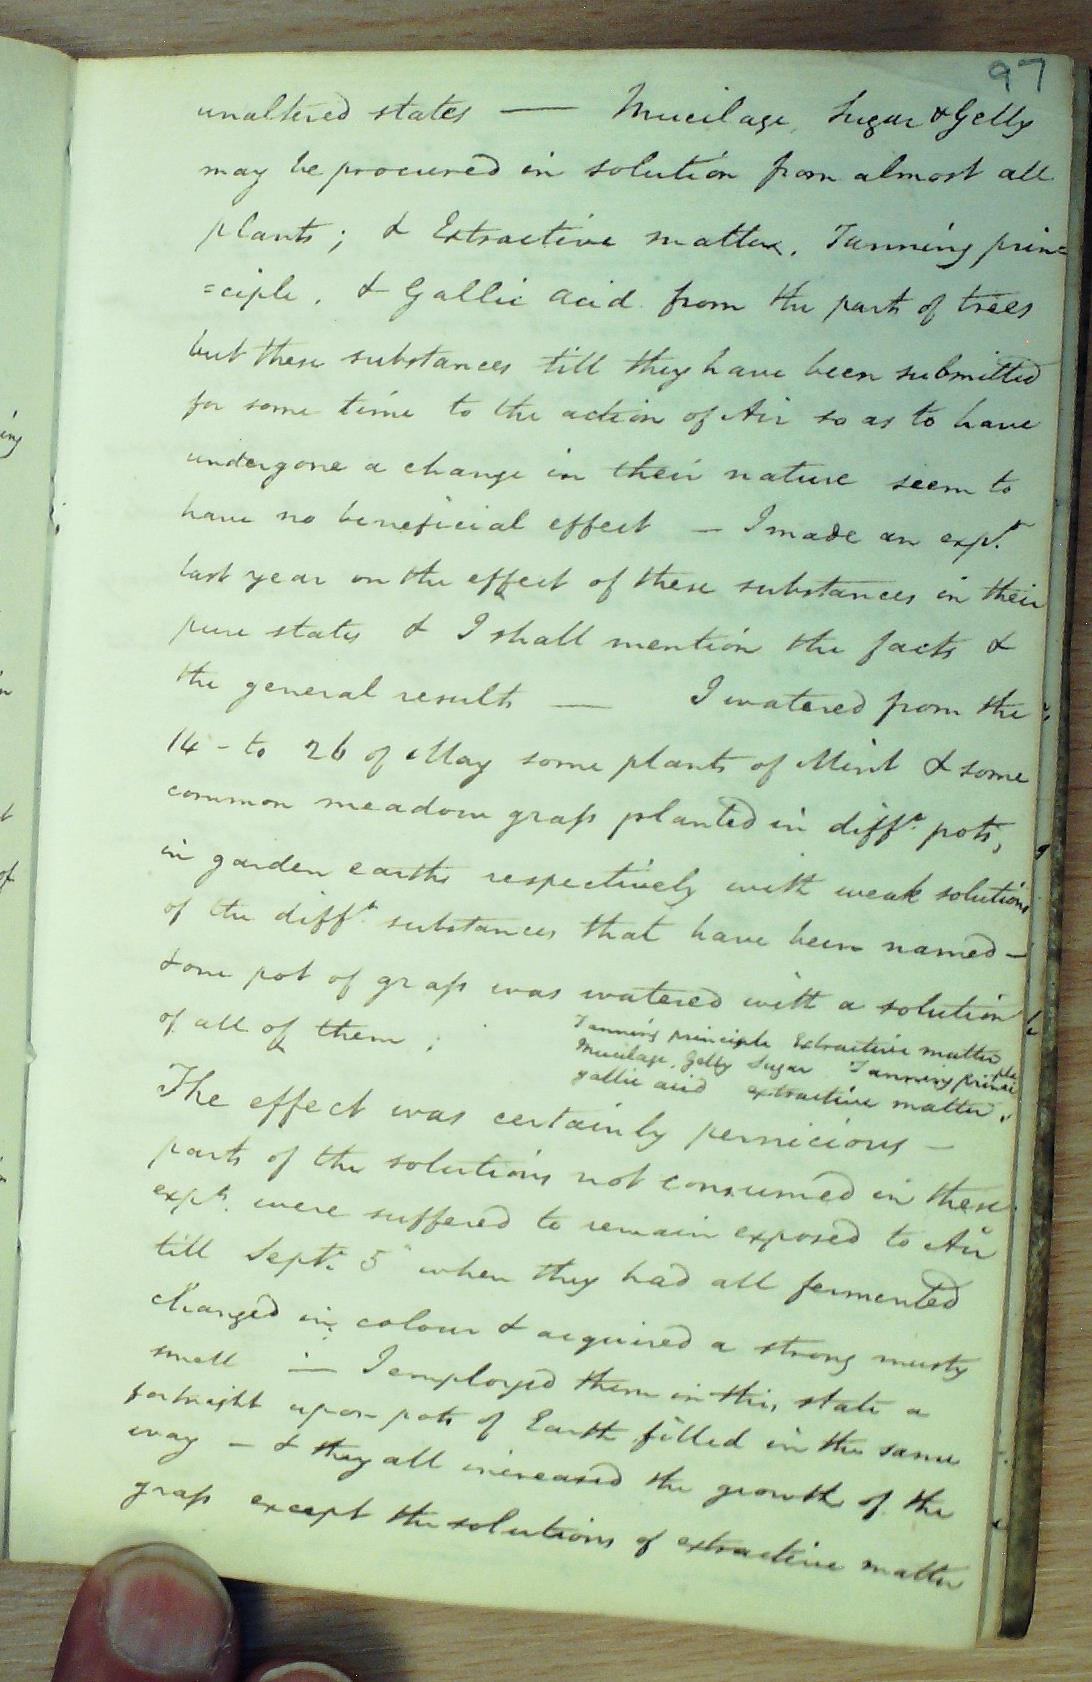 97
unaltered states — Mucilage, Sugar & Gelly
may be procured in solution from almost all
plants; & Extractive matter, Tanning prin=
=ciple, & Gallic acid from the parts of trees
but these substances till they have been submitted
for some time to the action of Air so as to have
undergone a change in their nature seem to
have no beneficial effect – I made an expt.
last year on the effect of these substances in their
pure states & I shall mention the facts &
the general results — I watered from the
14 - to 26 of May some plants of Mint & some
common meadow grass planted in difft. pots,
in garden earths respectively with weak solutions
of the difft. substances that have been named –
& one pot of grass was watered with a solution
of all of them;
Tanning principle Extractive matter
Mucilage, Gelly Sugar Tanning princi
ple
gallic acid extractive matter.
The effect was certainly pernicious –
parts of the solutions not consumed in these
expts. were suffered to remain exposed to Air
till Sept. 5 when they had all fermented
changed in colour & acquired a strong musty
smell — I employed them in this state a
fortnight upon pots of Earth filled in the same
way – & they all increased the growth of the
grass except the solutions of extractive matter